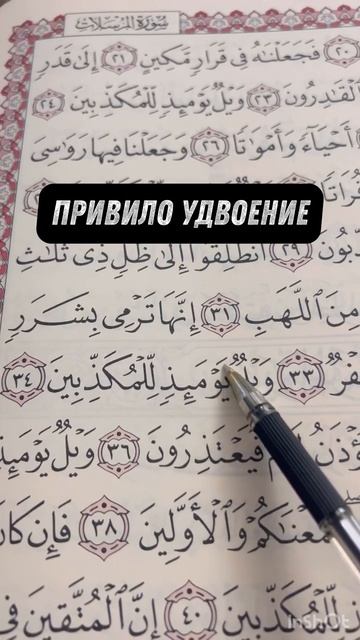 سُورَةُ المُرْسَلَاتِ
٢٠ فَجَعَلْنَٰهُ فِى قَرَارٍ مَّكِينٍ ٢١ إِلَىٰ قَدَرٍ
ٱلْقَٰدِرُونَ ٢٣ وَيْلٌ يَوْمَئِذٍ لِّلْمُكَذِّبِينَ ٢٤
أَحْيَآءً وَأَمْوَٰتًا ٢٦ وَجَعَلْنَا فِيهَا رَوَٰسِىَ
ПРИВИЛО УДВОЕНИЕ
ذِّبُونَ ٢٩ ٱنطَلِقُوٓا۟ إِلَىٰ ظِلٍّ ذِى ثَلَٰثِ
مِنَ ٱللَّهَبِ ٣١ إِنَّهَا تَرْمِى بِشَرَرٍ
فْرٌ ٣٣ وَيْلٌ يَوْمَئِذٍ لِّلْمُكَذِّبِينَ ٣٤
ؤْذَنُ لَهُمْ فَيَعْتَذِرُونَ ٣٦ وَيْلٌ يَوْمَئِذٍ
مَعْنَٰكُمْ وَٱلْأَوَّلِينَ ٣٨ فَإِن كَانَ
لِّلْمُكَذِّبِينَ ٤٠ إِنَّ ٱلْمُتَّقِينَ فِى
InShOt